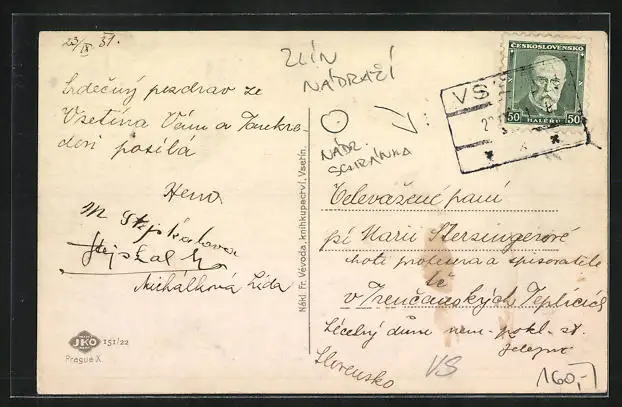 23/IX 31.
ZLÍN
NÁDRAŽÍ
NÁDR.
SCHRÁNKA
ČESKOSLOVENSKO
50 HALÉŘŮ 50
VS
Srdečný pozdrav ze
Vsetína Vám a Tankre-
dovi posílá
Hena
M Stejskalova
Stejskal
Michálková Lída
JKO 151/22
Prague X.
Nákl. Fr. Vévoda, knihkupectví, Vsetín.
Velevážená paní
pí Marii Sterzingerové
choti profesora a spisovatele
v Trenčanských Teplicích
Léčebný dům nem. pokl. st.
Slovensko
VS
160,-